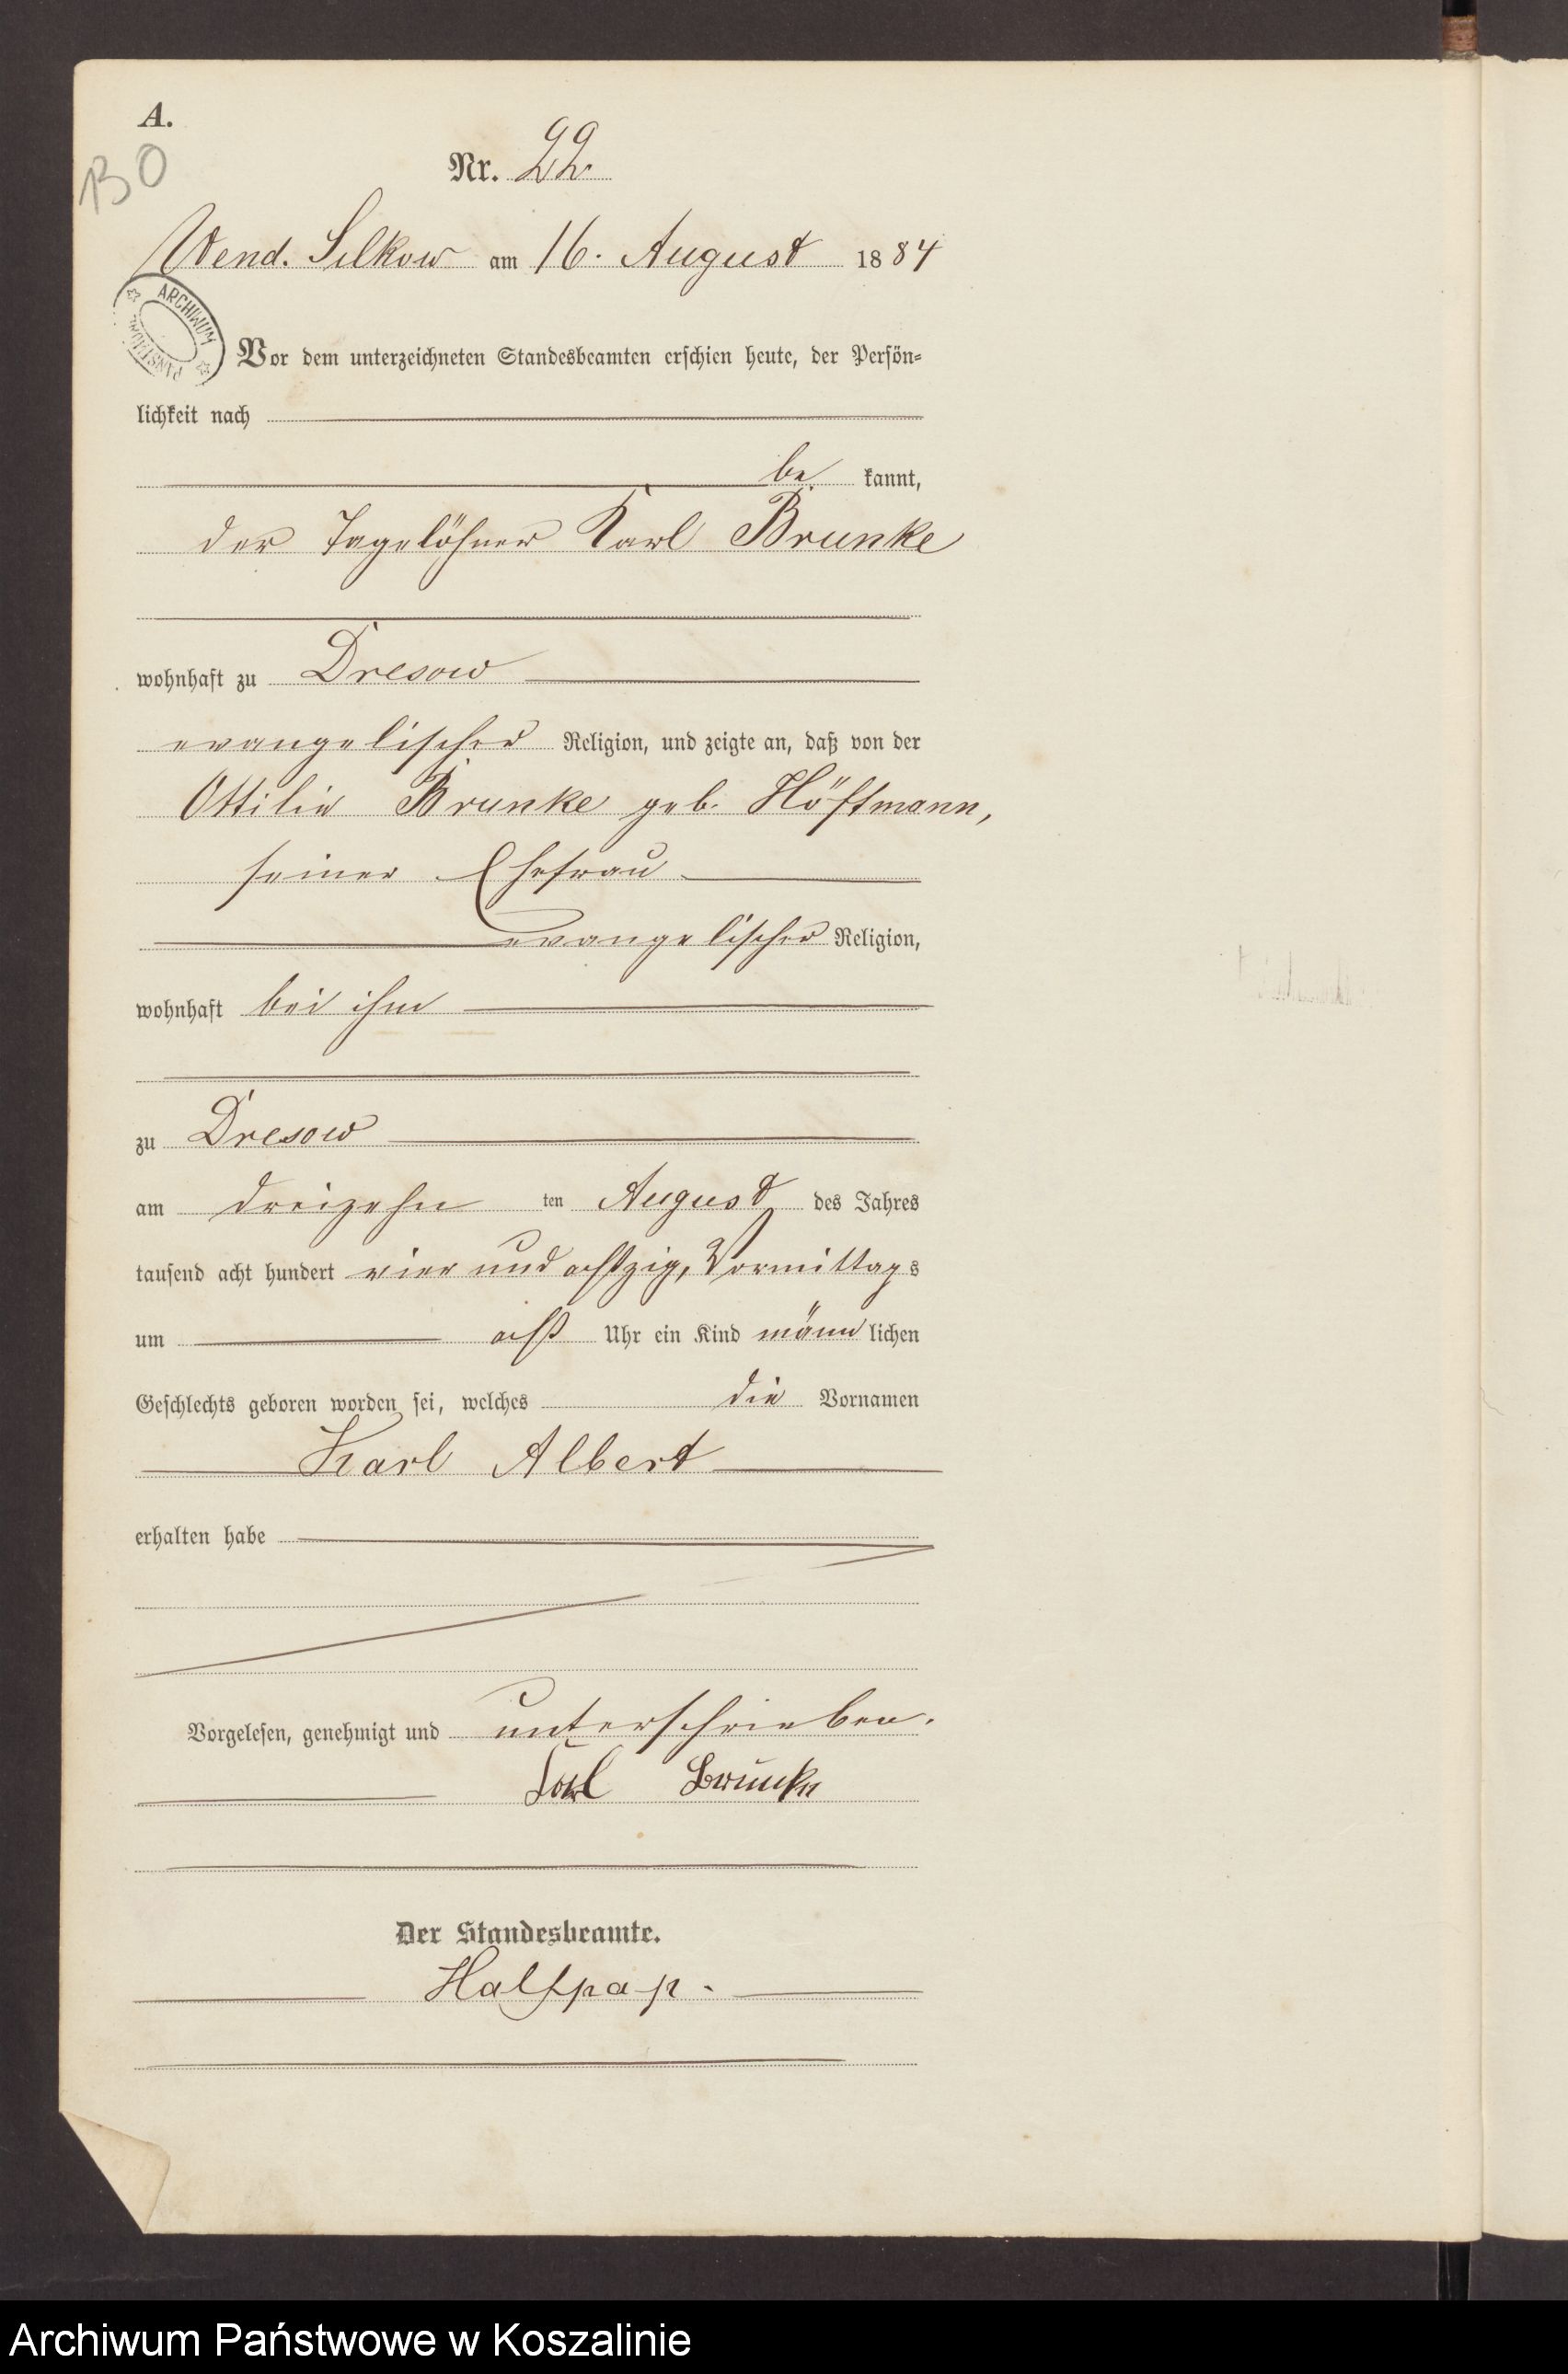 A.
130
Nr. 22
Wend. Silkow am 16. August 1884
ARCHIWUM PAŃSTWOWE
Vor dem unterzeichneten Standesbeamten erschien heute, der Persön-
lichkeit nach
be kannt,
der Tagelöhner Karl Brunke
wohnhaft zu Dresow
evangelischer Religion, und zeigte an, daß von der
Ottilie Brunke geb. Höftmann,
seiner Ehefrau
evangelischer Religion,
wohnhaft bei ihm
zu Dresow
am dreizehn ten August des Jahres
tausend acht hundert vier und achtzig, Vormittags
um acht Uhr ein Kind männ lichen
Geschlechts geboren worden sei, welches die Vornamen
Karl Albert
erhalten habe
Vorgelesen, genehmigt und unterschrieben.
Karl Brunke
Der Standesbeamte.
Halfpap.
Archiwum Państwowe w Koszalinie